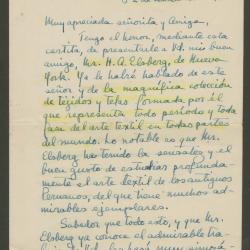 Muy apreciada señorita y Amiga,
Tengo el honor, mediante esta
cartita, de presentarle a Vd. mi buen
amigo, Mr. H. A. Elsberg, de Nueva
York. Ya le habré hablado de este
señor y de la magnífica colección
de tejidos y telas formada por él
que representa todo período y toda
fase del arte textil en todas partes
del mundo. Lo notable es que Mr.
Elsberg ha tenido la sensatez y el
buen gusto de estudiar profunda-
mente el arte textil de los antiguos
Peruanos, del que tiene muchos ad-
mirables ejemplares.
Sabedor que todo esto, y que Mr.
Elsberg ya conoce el admirable tra-